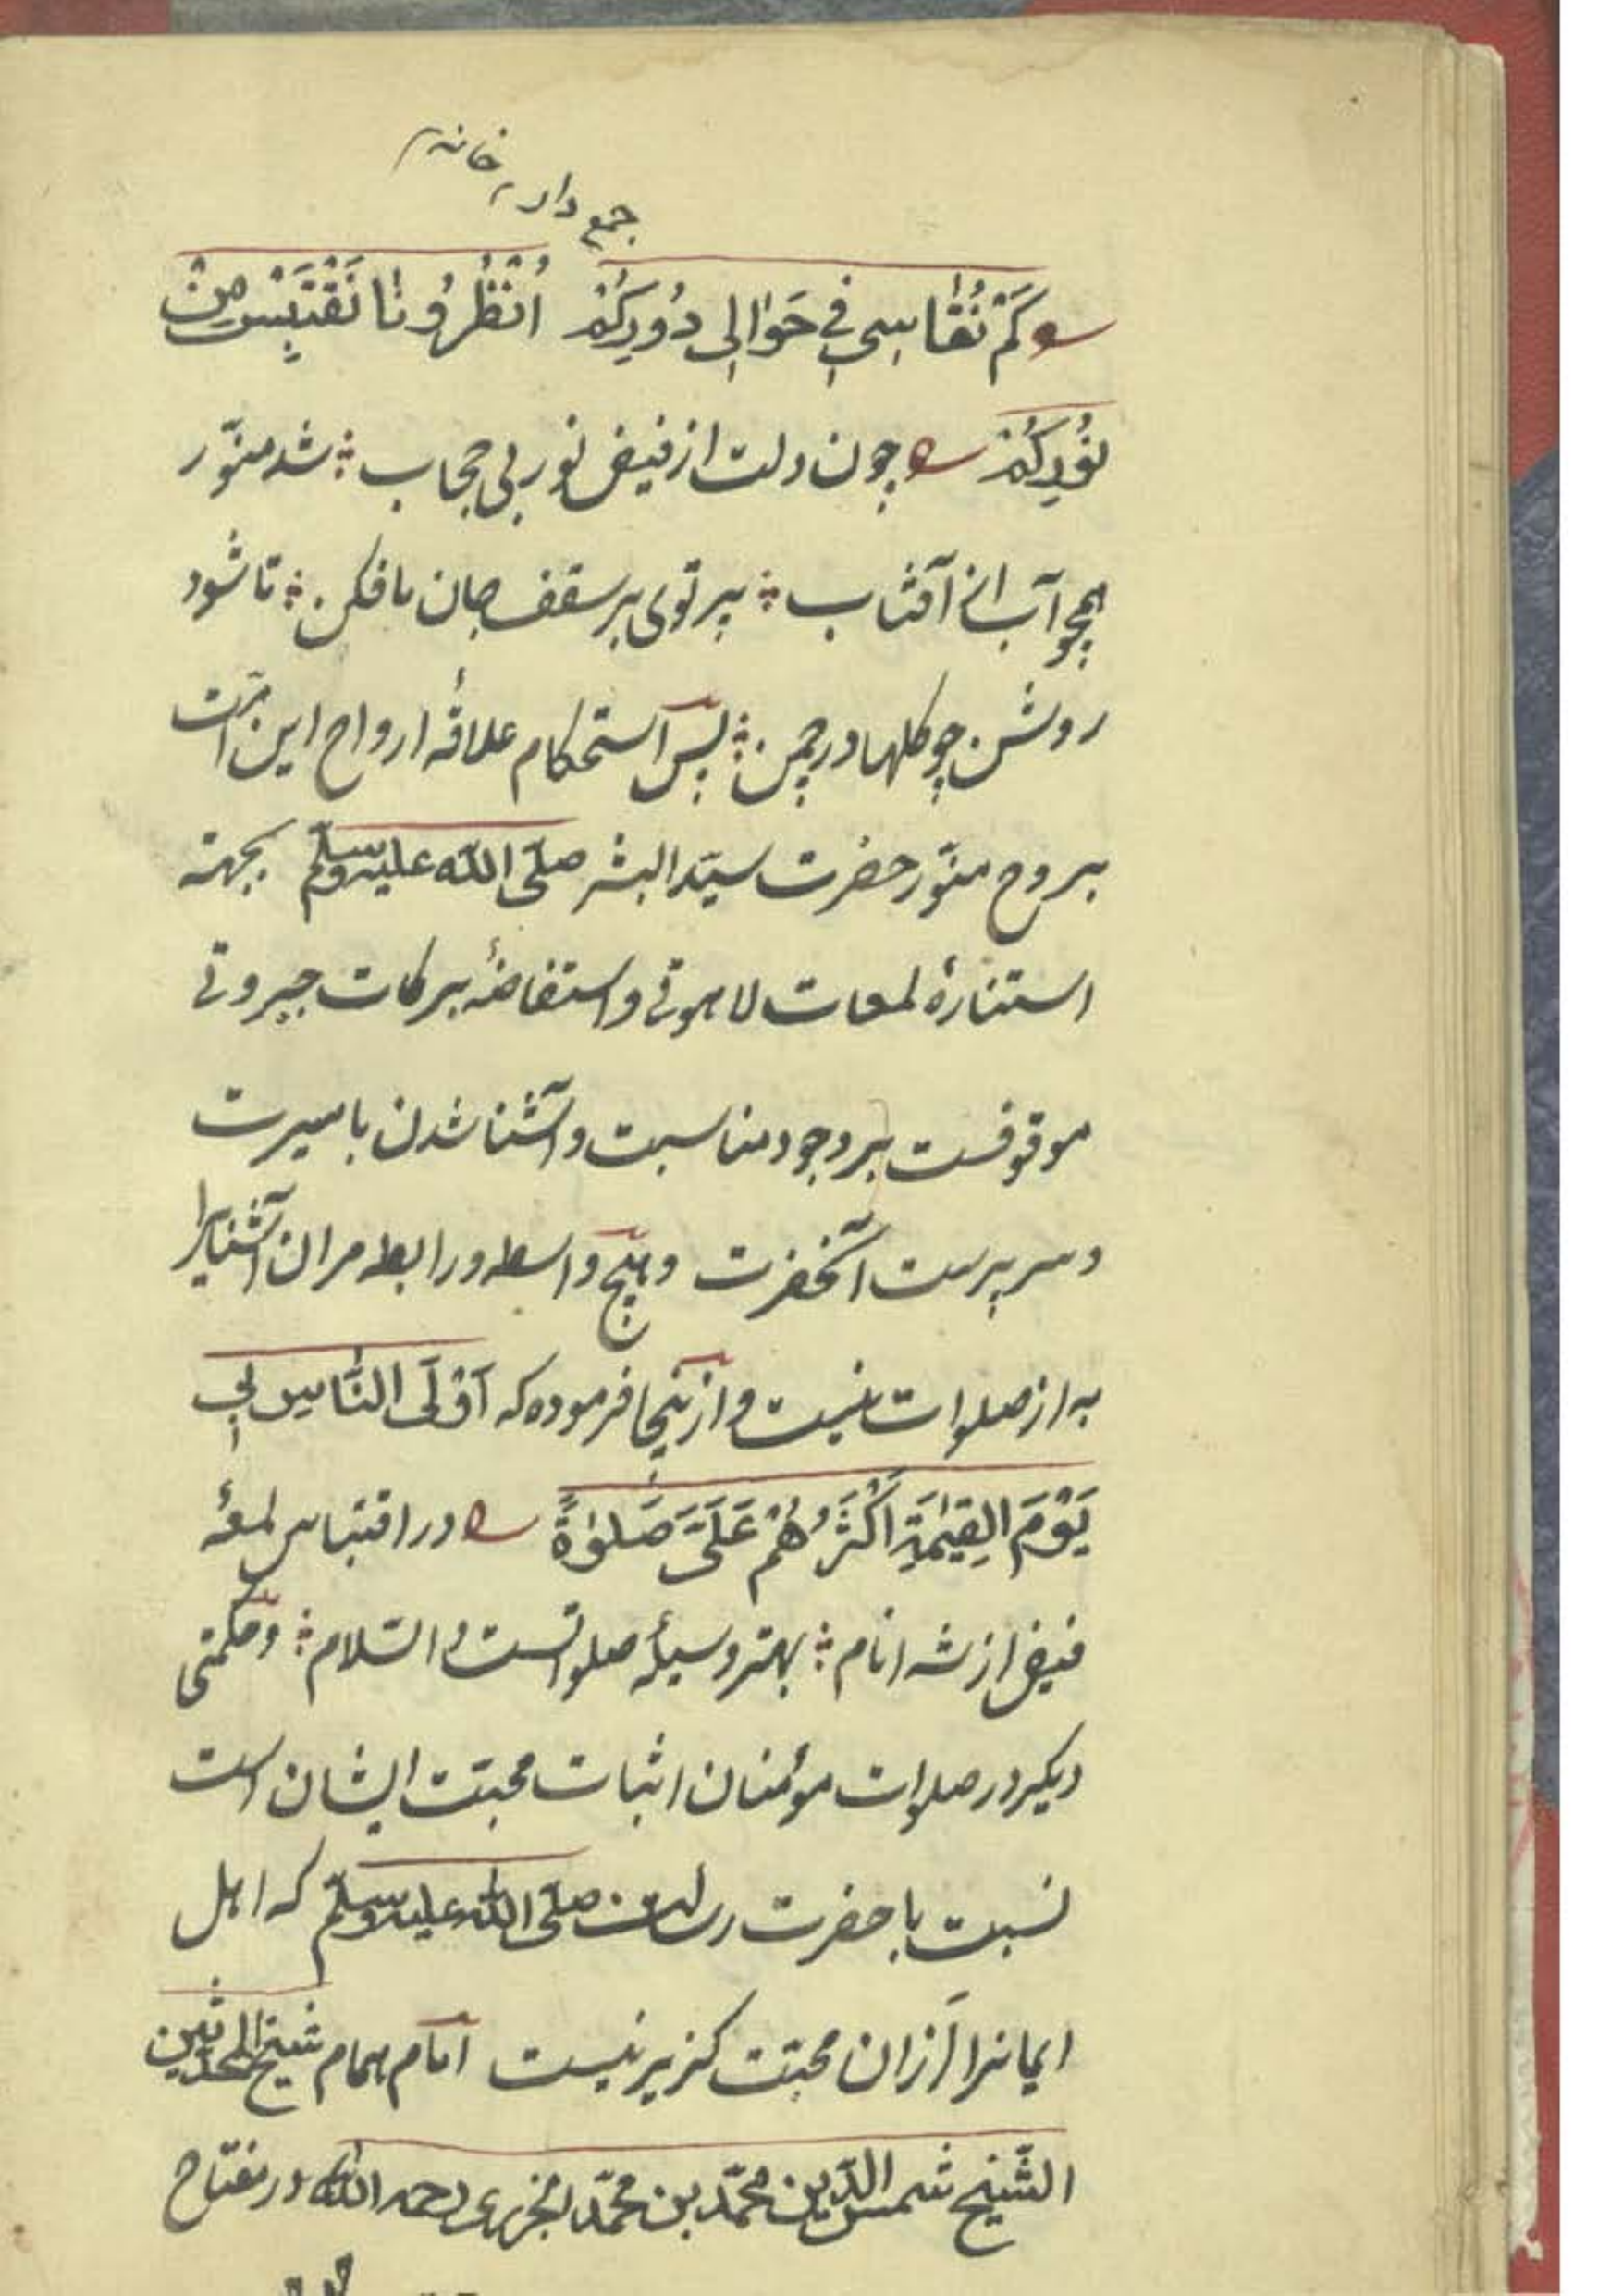 جمع دار خانه
كَمْ نُقَاسِي فِي حَوَالِي دُورِكُمْ اُنْظُرُونَا نَقْتَبِسْ مِنْ
نُورِكُمْ چون دلت از فیض نور بی حجاب ؛ شد منوّر
همچو آب از آفتاب ؛ پرتوی بر سقف جان ما فکن ؛ تا شود
روشن چو کلها در چمن ؛ پس استحکام علاقهٔ ارواح این امّت
بروح منوّر حضرت سیّد البشر صلّی اللّه علیه وسلّم بجهته
استنارهٔ لمعات لاهوتی و استفاضهٔ برکات جبروتی
موقوفست بر وجود مناسبت و آشنا شدن با سیرت
و سریرت آنحضرت و هیچ واسطه و رابطه مر ان آشنایرا
به از صلوات نیست و از ینجا فرموده که اَوْلَی النَّاسِ بِی
یَوْمَ الْقِیٰمَةِ اَکْثَرُهُمْ عَلَیَّ صَلٰوةً در اقتباس لمعهٔ
فیض از شه انام ؛ بهتر وسیلهٔ صلواتست و السّلام ؛ و حکمتی
دیکر در صلوات مؤمنان اثبات محبّت ایشان است
نسبت با حضرت رسالت صلّی اللّه علیه وسلّم که اهل
ایمانرا از ان محبّت کزیر نیست امام همام شیخ المحدّثین
الشّیخ شمس الدّین محمّد بن محمّد الجزری رحمه اللّه در مفتاح